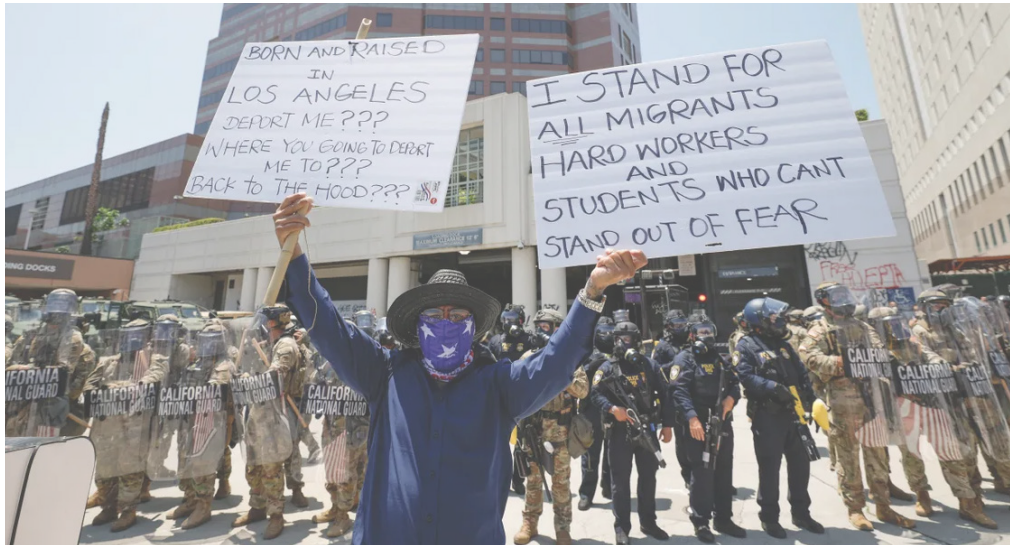 BORN AND RAISED
IN
LOS ANGELES
DEPORT ME???
WHERE YOU GOING TO DEPORT
ME TO???
BACK TO THE HOOD???
I STAND FOR
ALL MIGRANTS
HARD WORKERS
AND
STUDENTS WHO CANT
STAND OUT OF FEAR
NING DOCKS
CALIFORNIA
NATIONAL GUARD
CALIFORNIA
NATIONAL GUARD
CALIFORNIA
NATIONAL GUARD
CALIFORNIA
NATIONAL GUARD
CALIFORNIA
NATIONAL GUARD
CALIFORNIA
NATIONAL GUARD
CALIFORNIA
NATIONAL GUARD